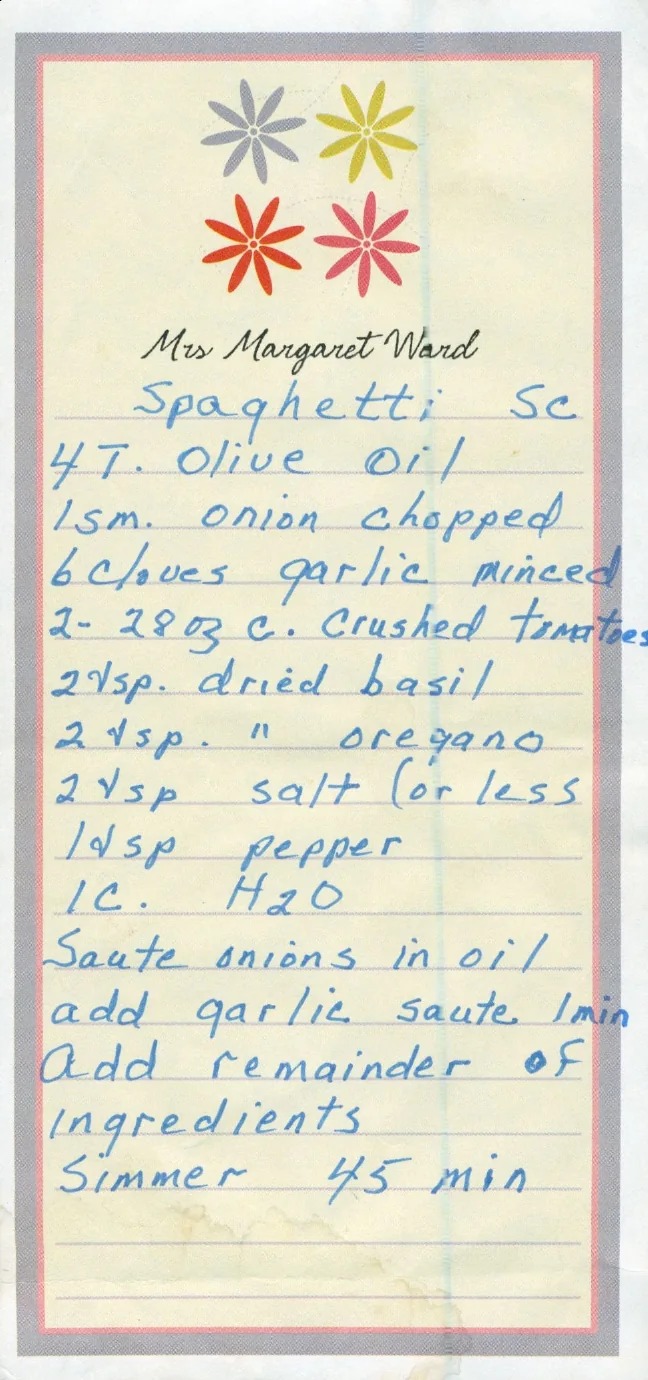 Mrs Margaret Ward
Spaghetti Sc
4 T. Olive Oil
1 sm. onion chopped
6 cloves garlic minced
2- 28 oz c. Crushed tomatoes
2 tsp. dried basil
2 tsp. " oregano
2 tsp salt (or less
1 tsp pepper
1 C. H2O
Saute onions in oil
add garlic saute 1 min
Add remainder of
ingredients
Simmer 45 min